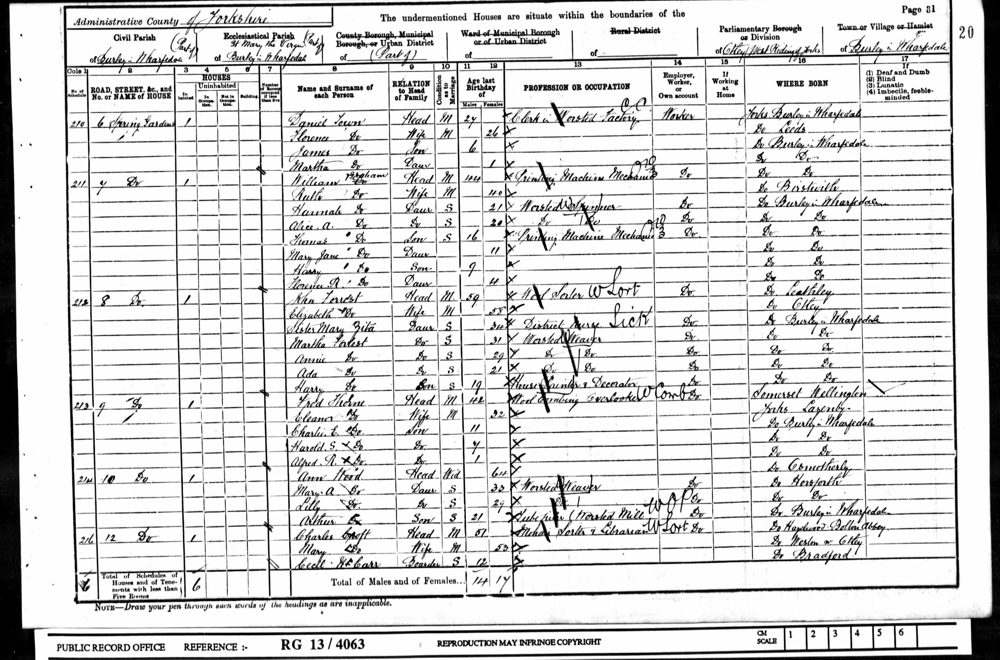 Page 31
20
Administrative County of Yorkshire
The undermentioned Houses are situate within the boundaries of the
Civil Parish (Part of)
of Burley in Wharfedale
Ecclesiastical Parish (Part of)
St Mary the Virgin
of Burley in Wharfedale
County Borough, Municipal Borough, or Urban District
of (Part of)
Ward of Municipal Borough or of Urban District
of
Rural District
of
Parliamentary Borough or Division
of Otley West Riding of Yorks
Town or Village or Hamlet
of Burley in Wharfedale
Cols. 1 2 3 4 5 6 7 8 9 10 11 12 13 14 15 16 17
No. of Schedule
ROAD, STREET, &c., and No. or NAME of HOUSE
HOUSES
Inhabited
Uninhabited
In Occupation
Not in Occupation
Building
Name and Surname of each Person
RELATION to Head of Family
Condition as to Marriage
Age last Birthday of
Males Females
PROFESSION OR OCCUPATION
Employer, Worker, or Own account
If Working at Home
WHERE BORN
If
(1) Deaf and Dumb
(2) Blind
(3) Lunatic
(4) Imbecile, feeble-minded
210 6 Spring Gardens 1 Daniel Town Head M 27 Clerk in Worsted Factory C.C Worker Yorks Burley in Wharfedale
Florence Do Wife M 26 Do Leeds
James Do Son 6 Do Burley in Wharfedale
Martha Do Daur 1 Do Do
211 7 Do 1 William Head M 44 Printing Machine Mechanic Do Do Do
Ruth Do Wife M 40 Do
Hannah Do Daur S 21 Worsted Spinner Do Do Burley in Wharfedale
Alice A. Do Do S 20 Do Do Do Do Do
Thomas " Do Son S 16 Printing Machine Mechanic Do Do Do
Mary Jane " Do Daur 11 Do Do
Harry " Do Son 9 Do Do
Florence R. " Do Daur 4 Do Do
212 8 Do 1 John Forrest Head M 59 Wool Sorter W Sort Do Do Leathley
Elizabeth Do Wife M 58 Do Otley
Sister Mary Zita Daur S 34 District Nurse Sick Do Do Burley in Wharfedale
Martha Forrest Do S 31 Worsted Weaver Do Do Do
Annie Do Do S 29 Do Do Do Do Do
Ada Do Do S 21 Do Do Do Do Do
Harry Do Son S 19 House Painter & Decorator Do Do Do
213 9 Do 1 Fred Thorne Head M 42 Wool Combing Overlooker W Comb Do Somerset Wellington
Eleanor Do Wife M 32 Yorks Lazenby
Charlie E. Do Son 11 Do Burley in Wharfedale
Harold S. Do Do 7 Do Do
Alfred R. Do Do 1 Do Do
214 10 Do 1 Ann Wood Head Wid 64 Do Osmotherly
Mary A. Do Daur S 33 Worsted Weaver Do Do Horsforth
Lilly Do Do S 29 Do Do Do
Arthur Do Son S 21 (Worsted Mill) Do Do Burley in Wharfedale
216 12 Do 1 Charles Croft Head M 51 Mohair Sorter & Librarian W Sort Do Do Bolton Abbey
Mary Do Wife M 53 Do Weston or Otley
Cecil Carr Boarder S 12 Do Bradford
6 Total of Schedules of Houses and of Tenements with less than Five Rooms 6
Total of Males and of Females... 14 17
NOTE—Draw your pen through such words of the headings as are inapplicable.
PUBLIC RECORD OFFICE REFERENCE :- RG 13 / 4063 REPRODUCTION MAY INFRINGE COPYRIGHT CM SCALE 1 2 3 4 5 6